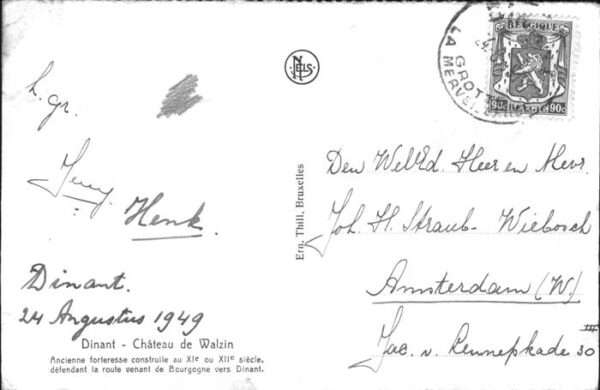 h. gr.
Jenny
Henk.
Dinant.
24 Augustus 1949
Dinant - Château de Walzin
Ancienne forteresse construite au XIe ou XIIe siècle,
défendant la route venant de Bourgogne vers Dinant.
NELS
Ern. Thill, Bruxelles
LA GROTTE
MERVEILLEUSE
BELGIQUE
90c BELGIË 90c
Den WelEd. Heer en Mevr.
Joh. H. Straub-Wiebosch
Amsterdam (W.)
Jac. v. Lennepkade 30 III